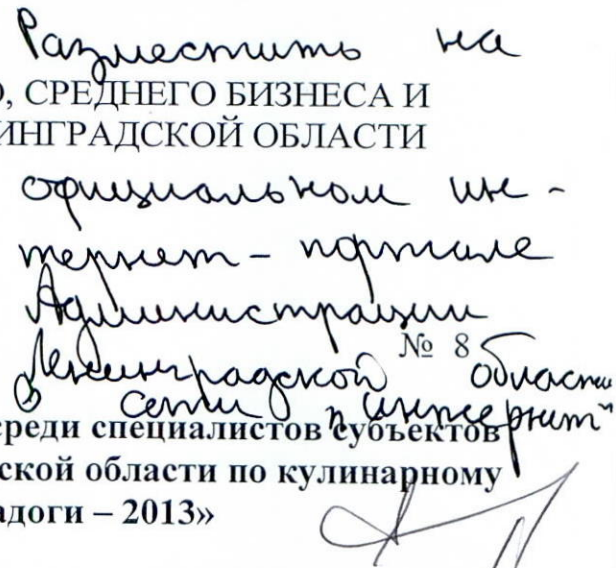 Разместить на
, СРЕДНЕГО БИЗНЕСА И
ИНГРАДСКОЙ ОБЛАСТИ
официальном ин-
тернет-портале
Администрации
№ 8
Ленинградской области
в сети "интернет"
среди специалистов субъектов
ской области по кулинарному
адоги – 2013»